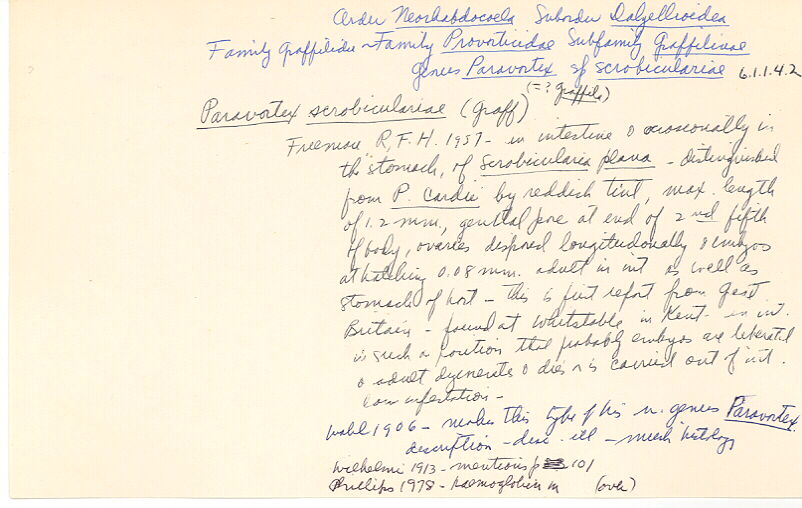 Order Neorhabdocoela Suborder Dalyellioidea
Family Graffillidae ~ Family Provorticidae Subfamily Graffillinae
genus Paravortex sp scrobiculariae 6.1.1.4.2
(=? graffila)
Paravortex scrobiculariae (Graff)
Freeman R.F.H. 1957 - in intestine & occasionally in
the stomach, of Scrobicularia plana - distinguished
from P. cardii by reddish tint, max. length
of 1.2 mm, genital pore at end of 2nd fifth
of body, ovaries disposed longitudinally & embryos
at hatching 0.08 mm. adult in int as well as
stomach of host - this is first report from Great
Britain - found at Whitstable in Kent - in int.
in such a position that probably embryos are liberated
& adult degenerates & dies & is carried out of int.
low infestation -
Wahl 1906 - makes this type of his n. genus Paravortex
description - disc. ill - much histology
Wilhelmi 1913 - mentions p 101
Phillips 1978 - haemoglobin in (over)